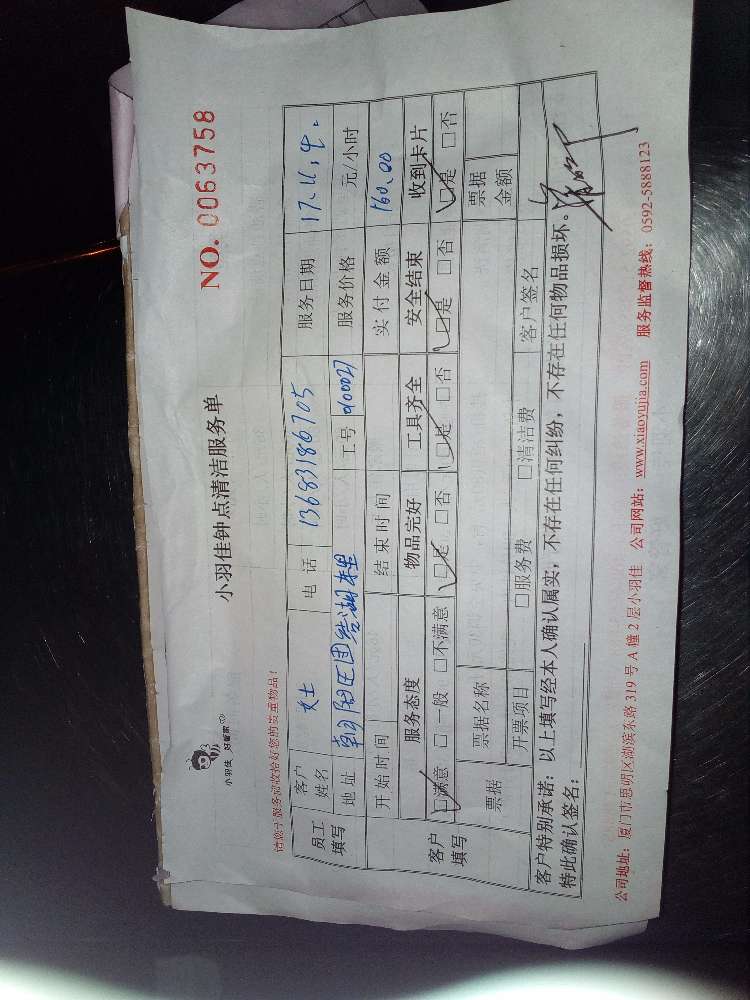 小羽佳 好管家
小羽佳钟点清洁服务单
NO. 0063758
请您于服务前收拾好您的贵重物品！
员工填写 客户姓名 女士 电话 13683186705 服务日期 17.11.4.
地址 朝阳区团结湖 工号 服务价格 元/小时
开始时间 结束时间 实付金额 160.00
客户填写 服务态度 物品完好 工具齐全 安全结束 收到卡片
□满意 □一般 □不满意 □是 □否 □是 □否 □是 □否 □是 □否
票据 票据名称 票据金额
开票项目 □服务费 □清洁费 客户签名
客户特别承诺：以上填写经本人确认属实，不存在任何纠纷，不存在任何物品损坏。
特此确认签名：
公司地址：厦门市思明区湖滨东路 319 号 A 幢 2 层小羽佳 公司网站：www.xiaoyujia.com 服务监督热线：0592-5888123